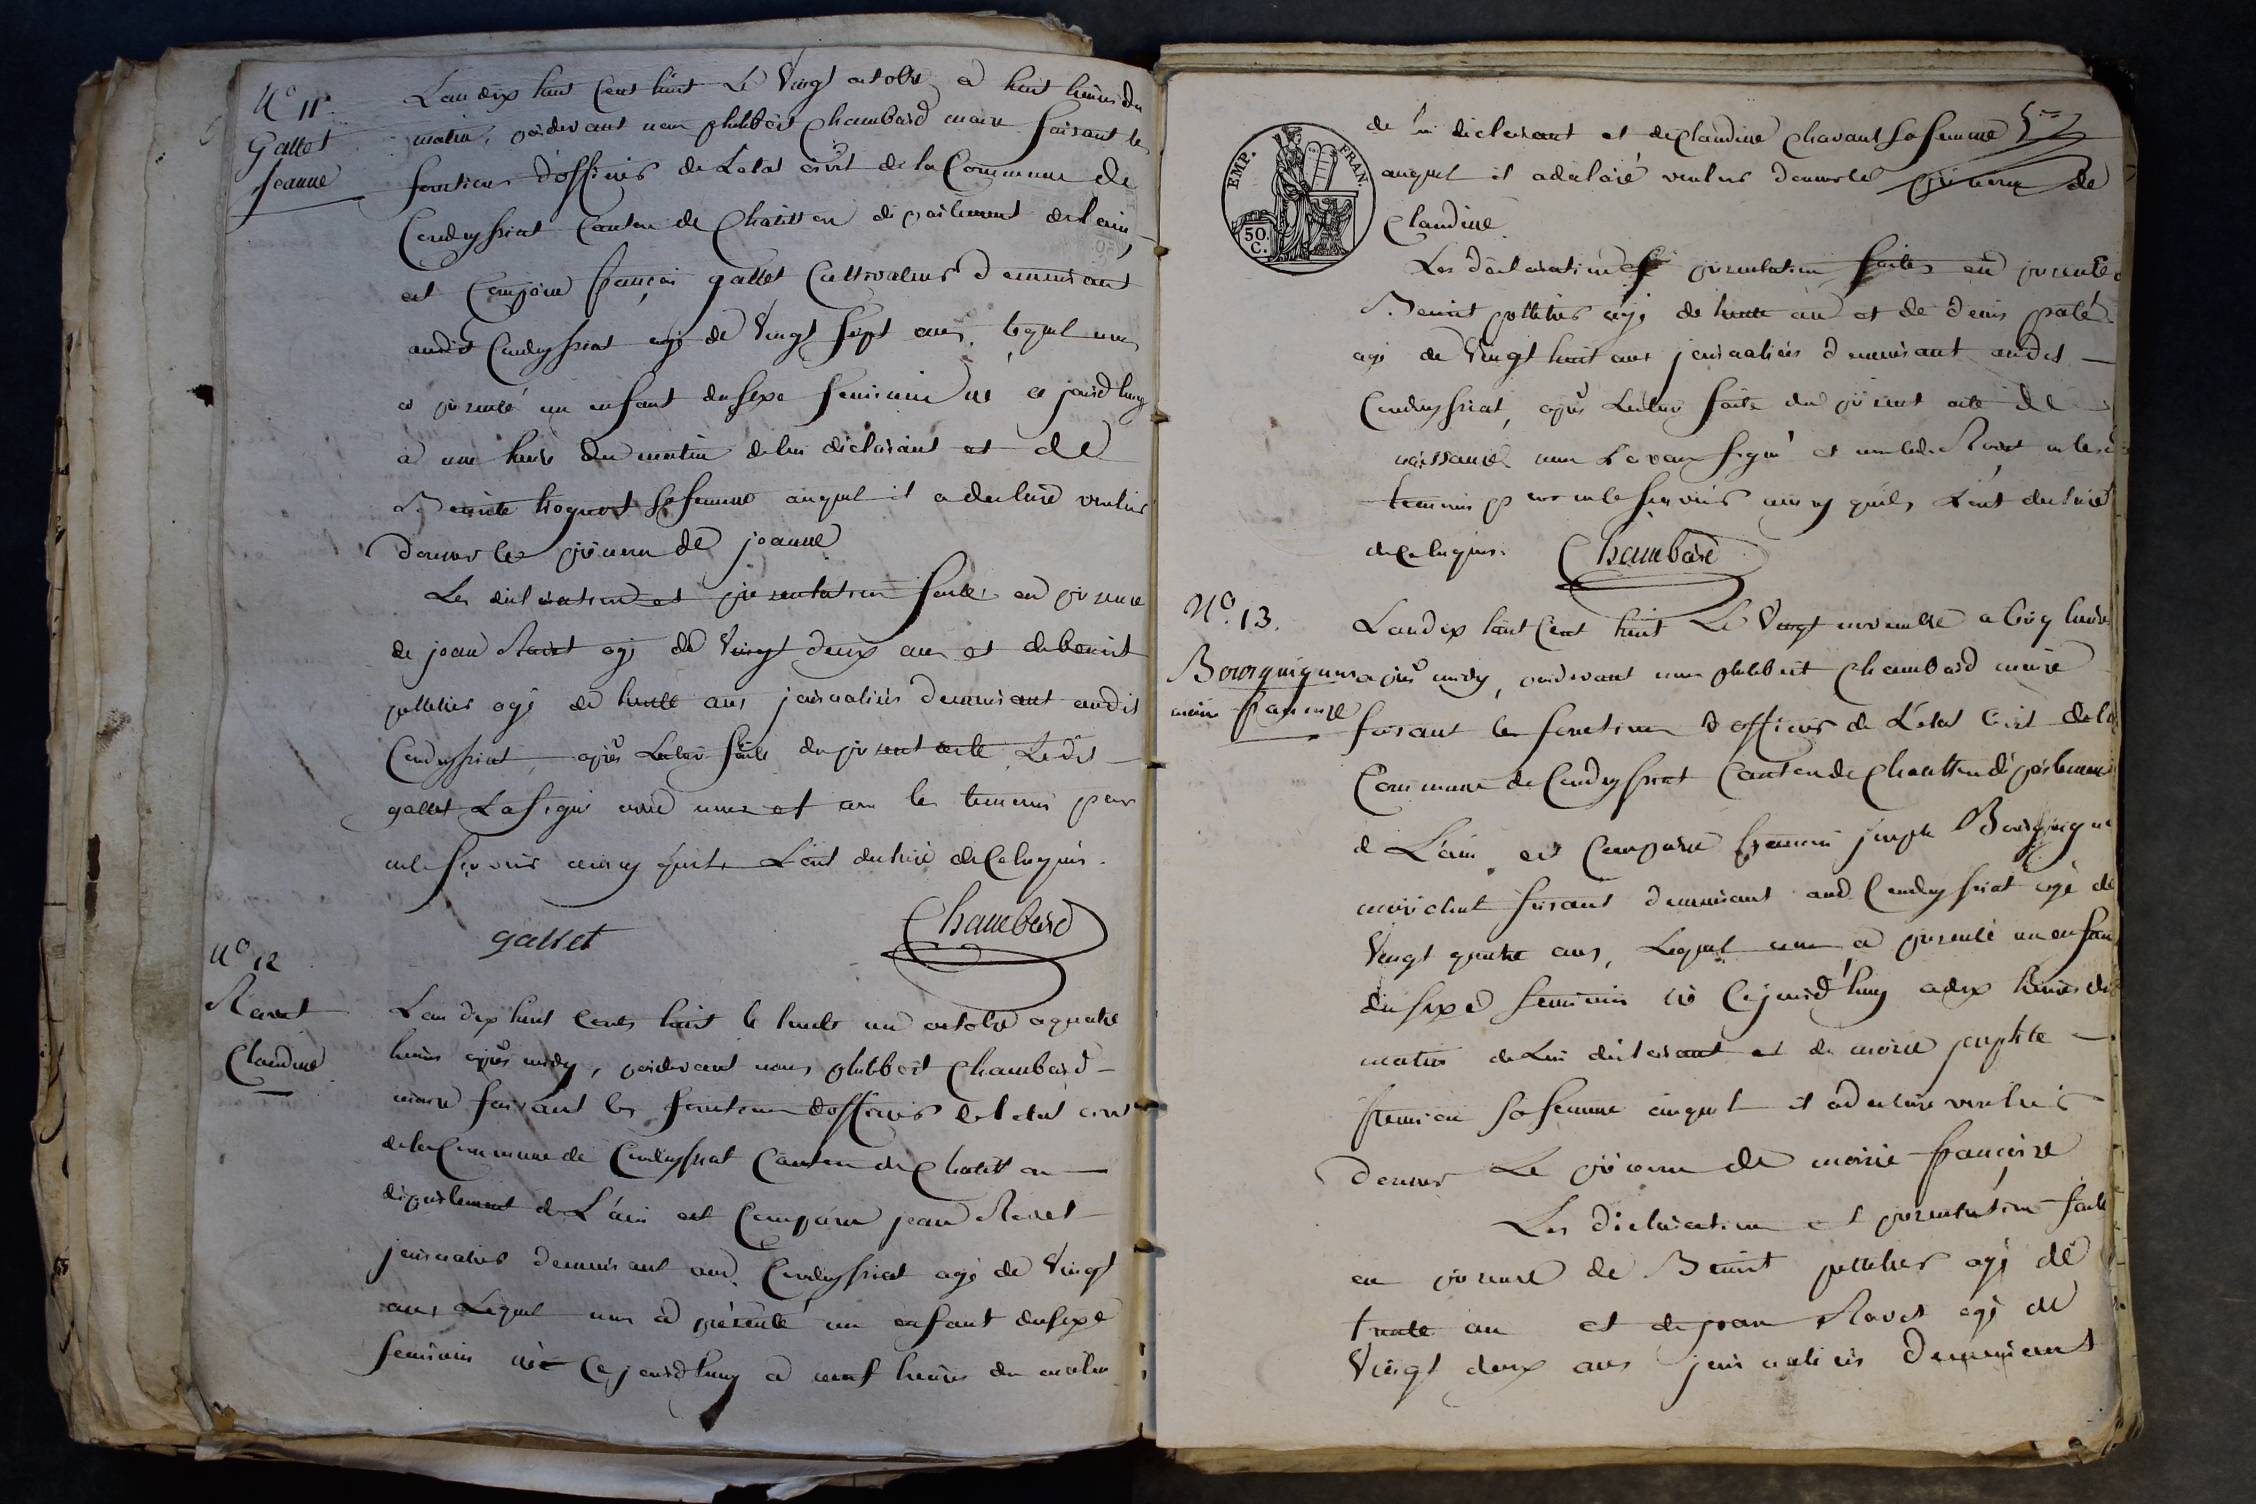 N° 11
Gallet
Jeanne
L'an dix huit Cent huit Le Vingt octobre a huit heures du
matin, pardevant nous philibert Chambard maire faisant les
fonctions d'officier de L'etat civil de la Commune de
Condeyssiat Canton de Chatillon département de l'ain,
est Comparu françois gallet Cultivateur demeurant
audit Condeyssiat agé de Vingt sept ans, lequel nous
a presenté un enfant du sexe feminin né ce jourd'huy
a une heure du matin de lui déclarant et de
Benoite sa femme auquel il a declaré vouloir
donner le prénom de jeanne
Les declaration et presentation faites en presence
de jean Ravet agé de Vingt deux ans et de benoit
pelletier agé de trente ans journaliers demeurant audit
Condeyssiat, après lecture faite du present acte Ledit
gallet La signé avec nous et non les temoins pour
ne le sçavoir ainsy qu'ils L'ont declaré de Ce enquis.
gallet
Chambard
N° 12
Ravet
Claudine
L'an dix huit Cents huit le trente un octobre a quatre
heures après midy, pardevant nous philibert Chambard
maire faisant les fonctions d'officier de l'etat civil
de la Commune de Condeyssiat Canton de Chatillon
département de L'ain est Comparu jean Ravet
journalier demeurant aud. Condeyssiat agé de Vingt
ans Lequel nous a présenté un enfant du sexe
feminin né Ce jourd'huy a neuf heures du matin
EMP. FRAN.
50. C.
de lui declarant et de Claudine Chavant sa femme
auquel il a déclaré vouloir donner le prénom de
Claudine
Les déclaration et presentation faites en presence
Benoit pelletier agé de trente ans et de denis
agé de Vingt huit ans journaliers demeurant audit
Condeyssiat, après Lecture faite du présent acte de
naissance nous L'avons signé et non led. Ravet ni les
temoins pour ne le sçavoir ainsy qu'ils L'ont declaré
de Ce enquis. Chambard
N° 13.
Bourguignon
marie francoise
L'an dix huit Cent huit Le Vingt novembre a Cinq heures
après midy, pardevant nous philibert Chambard maire
faisant les fonctions d'officier de L'état Civil de la
Commune de Condeyssiat Canton de Chatillon département
de L'ain est Comparu joseph Bourguignon
demeurant aud. Condeyssiat agé de
Vingt quatre ans, Lequel nous a presenté un enfant
du sexe feminin né Ce jourd'huy a dix heures du
matin de Lui déclarant et de marie josephte
sa femme auquel il a declaré vouloir
donner Le prénom de marie francoise
Les déclaration et presentation faites
en presence de Benoit pelletier agé de
trente ans et de jean Ravet agé de
Vingt deux ans journaliers demeurant